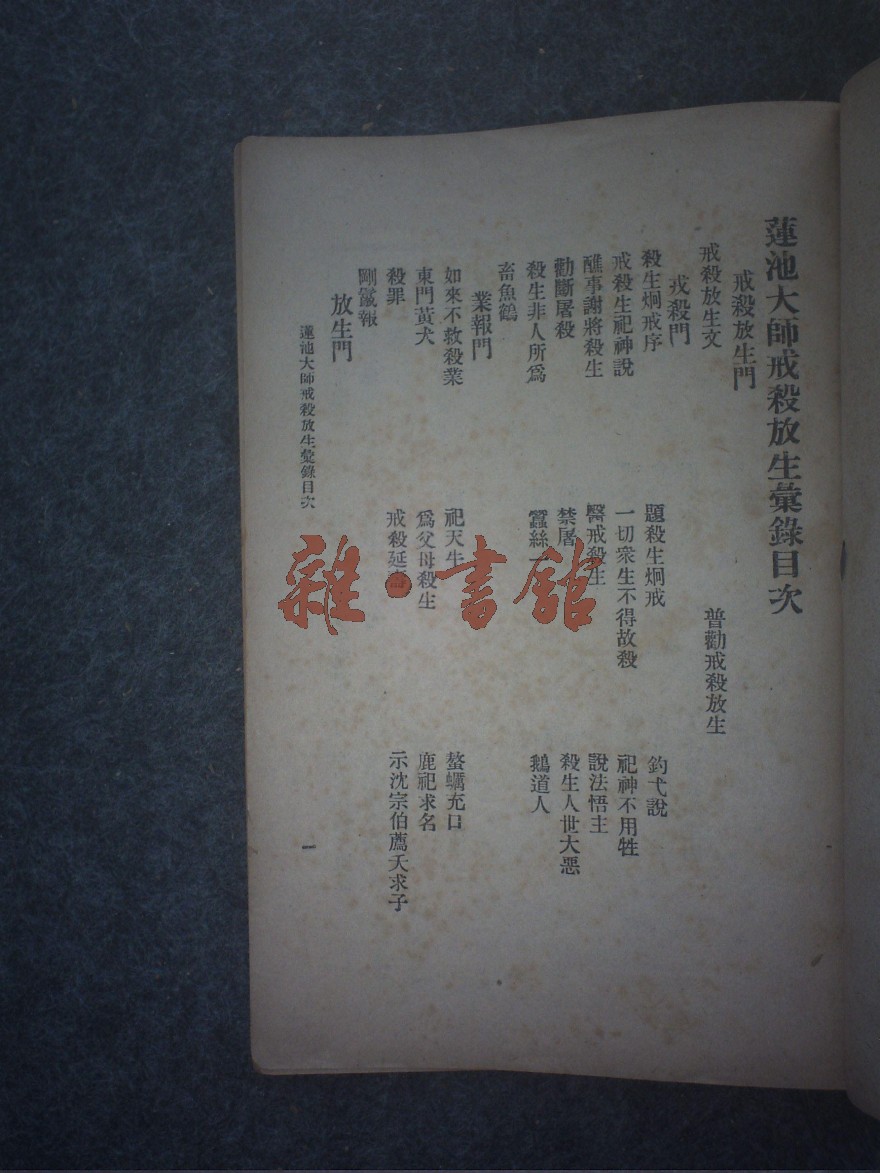 蓮池大師戒殺放生彙錄目次
戒殺放生門
戒殺放生文 普勸戒殺放生
戒殺門
殺生炯戒序 題殺生炯戒 釣弋說
戒殺生祀神說 一切衆生不得故殺 祀神不用牲
醮事謝將殺生 醫戒殺生 說法悟主
勸斷屠殺 禁屠 殺生人世大惡
殺生非人所爲 蠶絲一 鵝道人
畜魚鶴
業報門
如來不救殺業 祀天生 螯蠣充口
東門黃犬 爲父母殺生 鹿祀求名
殺罪 戒殺延壽 示沈宗伯薦夭求子
剛鬣報
放生門
蓮池大師戒殺放生彙錄目次 一
雜·書館